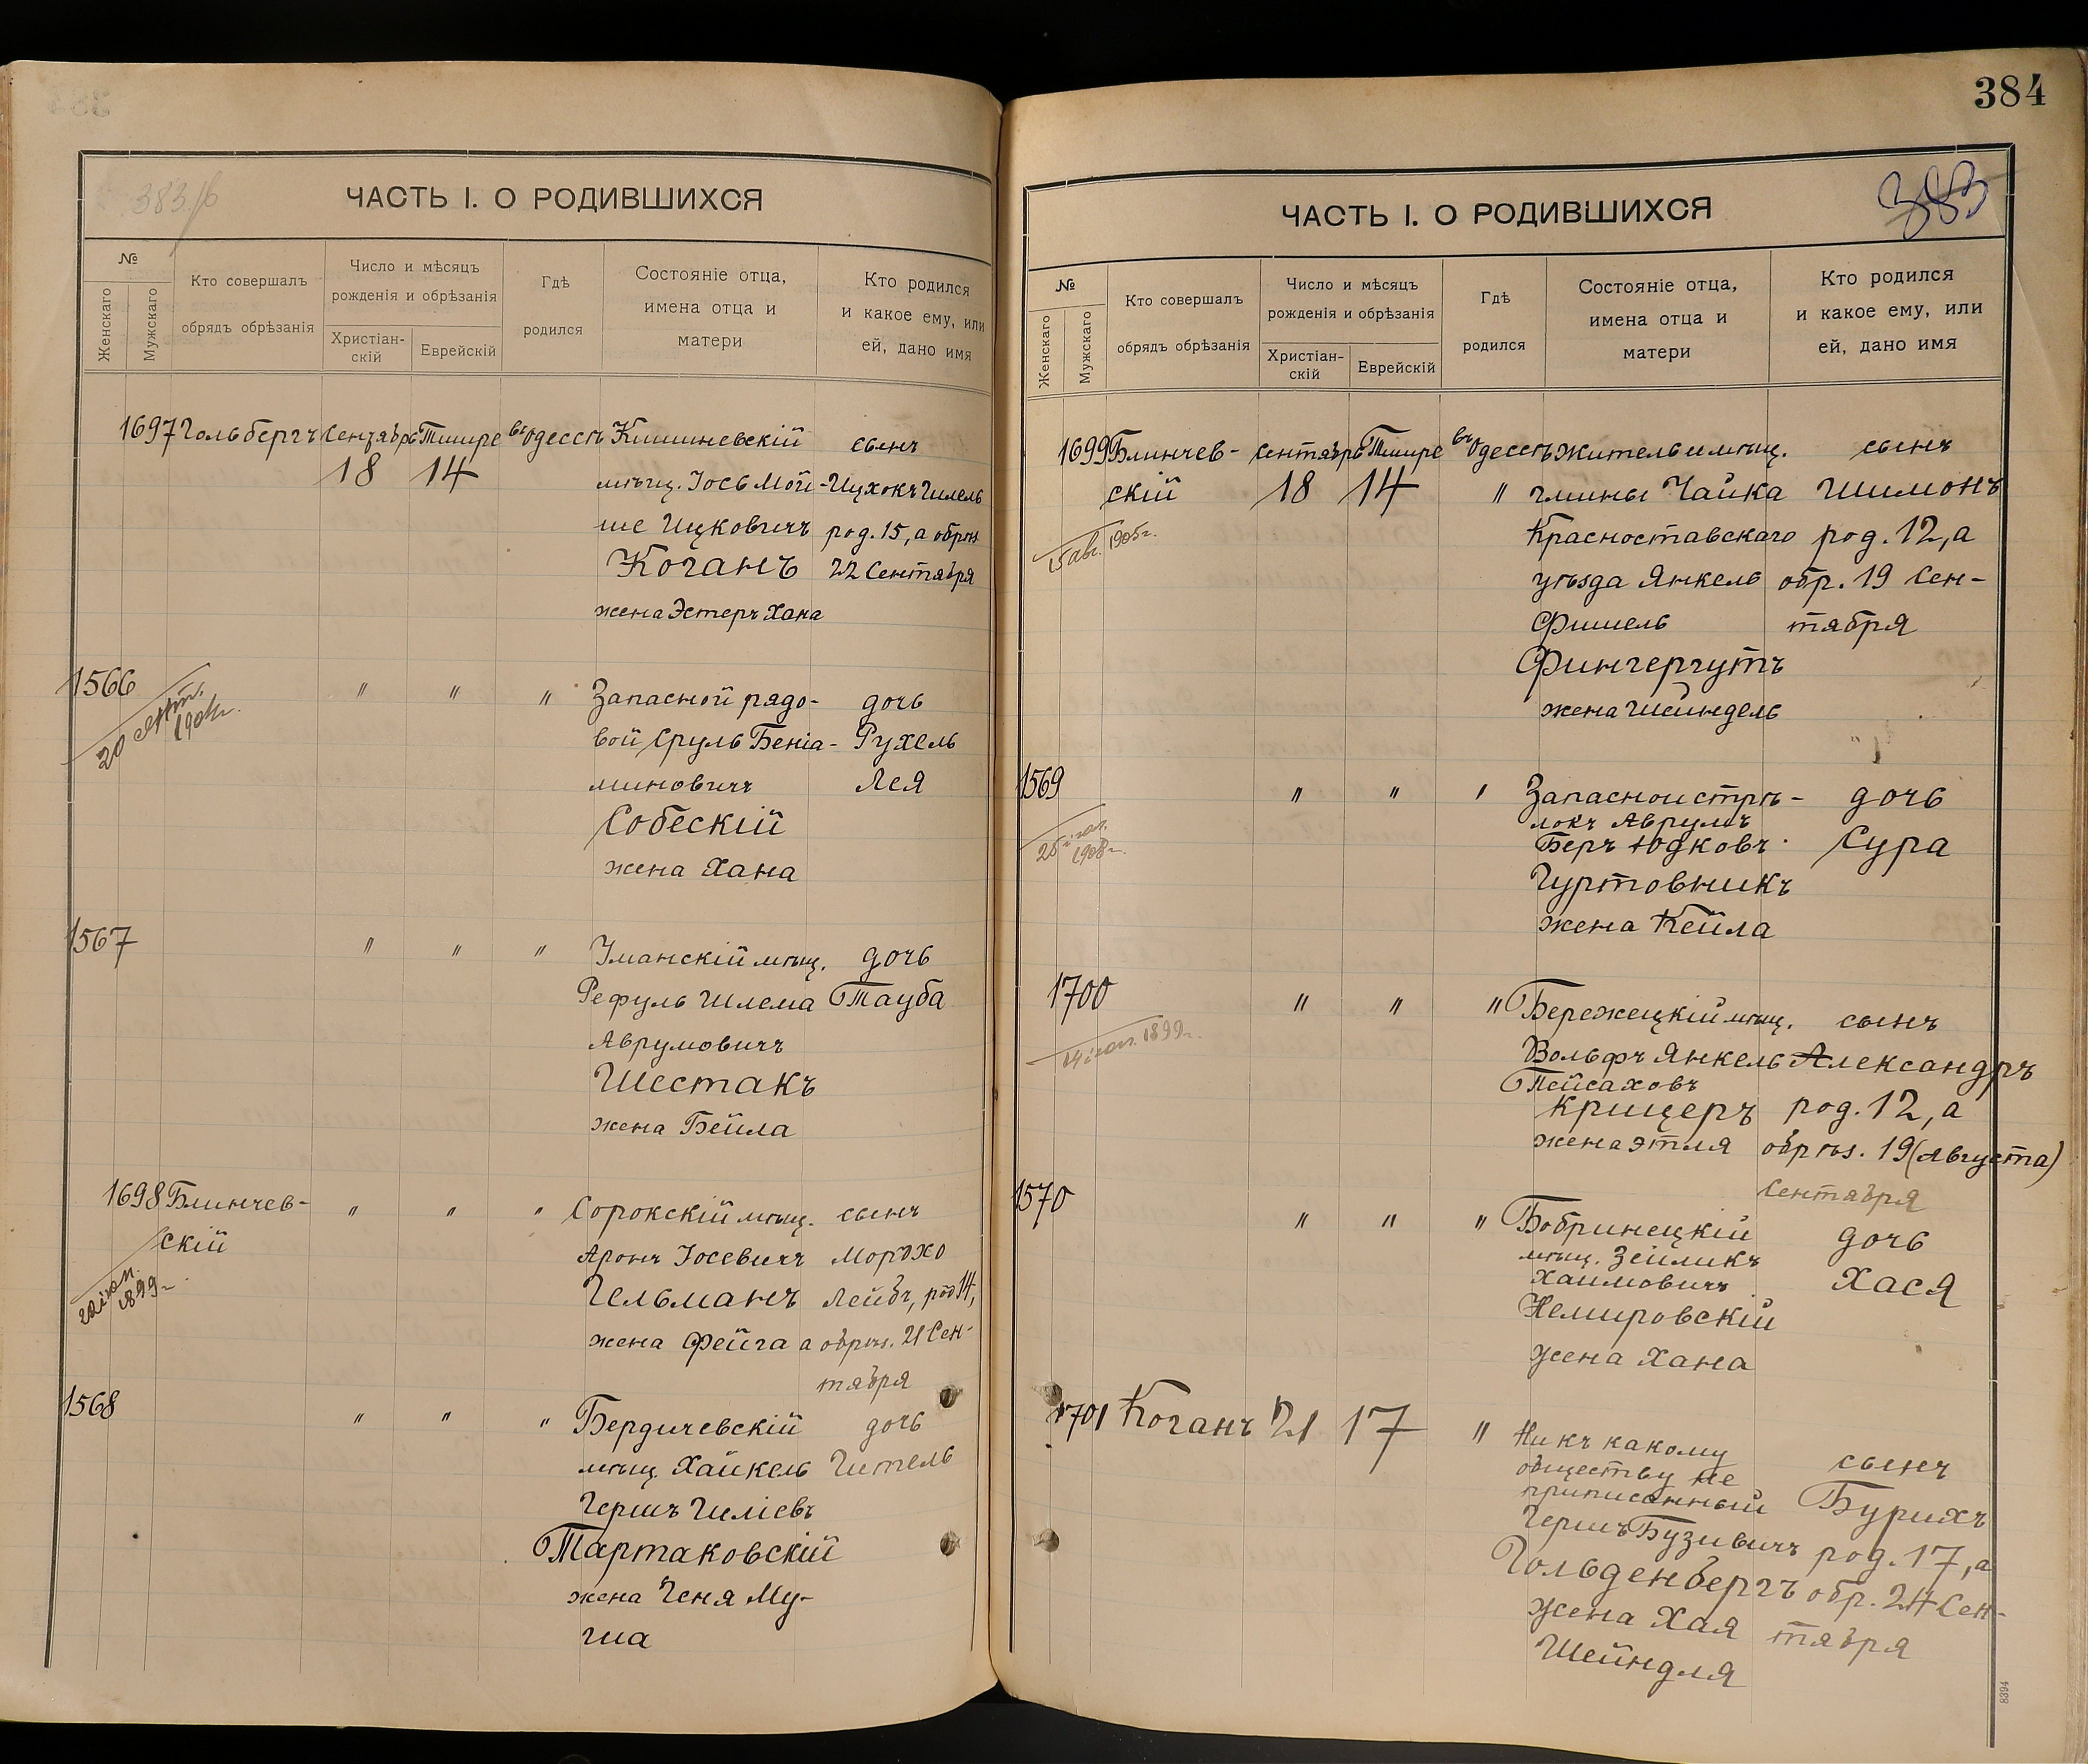 384
383
383/б
ЧАСТЬ I. О РОДИВШИХСЯ
№
Женскаго
Мужскаго
Кто совершалъ
обрядъ обрѣзанія
Число и мѣсяцъ
рожденія и обрѣзанія
Христіан-
скій
Еврейскій
Гдѣ
родился
Состояніе отца,
имена отца и
матери
Кто родился
и какое ему, или
ей, дано имя
1697 Гольбергъ Сентябрь Тишре въ Одессѣ Кишиневскій сынъ
18 14 мѣщ. Іось Мой- Ицхокъ Гилель
ше Ицковичъ род. 15, а обрѣз
Коганъ 22 Сентября
жена Эстеръ Хана
1566 " " " Запасной рядо- дочь
20 сент. 1904 г.
вой Сруль Беніа- Рухель
миновичъ Лея
Собескій
жена Хана
1567 " " " Уманскій мѣщ. дочь
Рефуль Шлема Тауба
Аврумовичъ
Шестакъ
жена Бейла
1698 Блинчев- " " " Сорокскій мѣщ. сынъ
скій Аронъ Іосевичъ Мордхо
1899 г.
Гельманъ Лейбъ, род 14,
жена Фейга а обрѣз. 21 Сен-
тября
1568 " " " Бердичевскій дочь
мѣщ Хайкель Гитель
Гершъ Гиліевъ
Тартаковскій
жена Геня Му-
ша
ЧАСТЬ I. О РОДИВШИХСЯ
№
Женскаго
Мужскаго
Кто совершалъ
обрядъ обрѣзанія
Число и мѣсяцъ
рожденія и обрѣзанія
Христіан-
скій
Еврейскій
Гдѣ
родился
Состояніе отца,
имена отца и
матери
Кто родился
и какое ему, или
ей, дано имя
1699 Блинчев- Сентябрь Тишре въ Одессѣ Житель и мѣщ. сынъ
скій 18 14 " гмины Чайка Шимонъ
15 авг. 1905 г.
Красноставскаго род. 12, а
уѣзда Янкель обр. 19 Сен-
Фишель тября
Фингергутъ
жена Шейндель
1569 " " " Запасной стрѣ- дочь
локъ Аврумъ
25 1908 г.
Беръ Юдковъ Сура
Гуртовникъ
жена Кейла
1700 " " " Бережецкій мѣщ. сынъ
14 1899 г.
Вольфъ Янкель Александръ
Пейсаховъ
Крицеръ род. 12, а
жена Этля обрѣз. 19 (Августа)
Сентября
1570 " " " Бобринецкій дочь
мѣщ. Зейликъ
Хаимовичъ Хася
Немировскій
жена Хана
1701 Коганъ 21 17 " Ни къ какому сынъ
обществу не
приписанный Бурихъ
Гершъ Бузивичъ род. 17, а
Гольденбергъ обр. 24 Сен-
жена Хая тября
Шейндля
8394